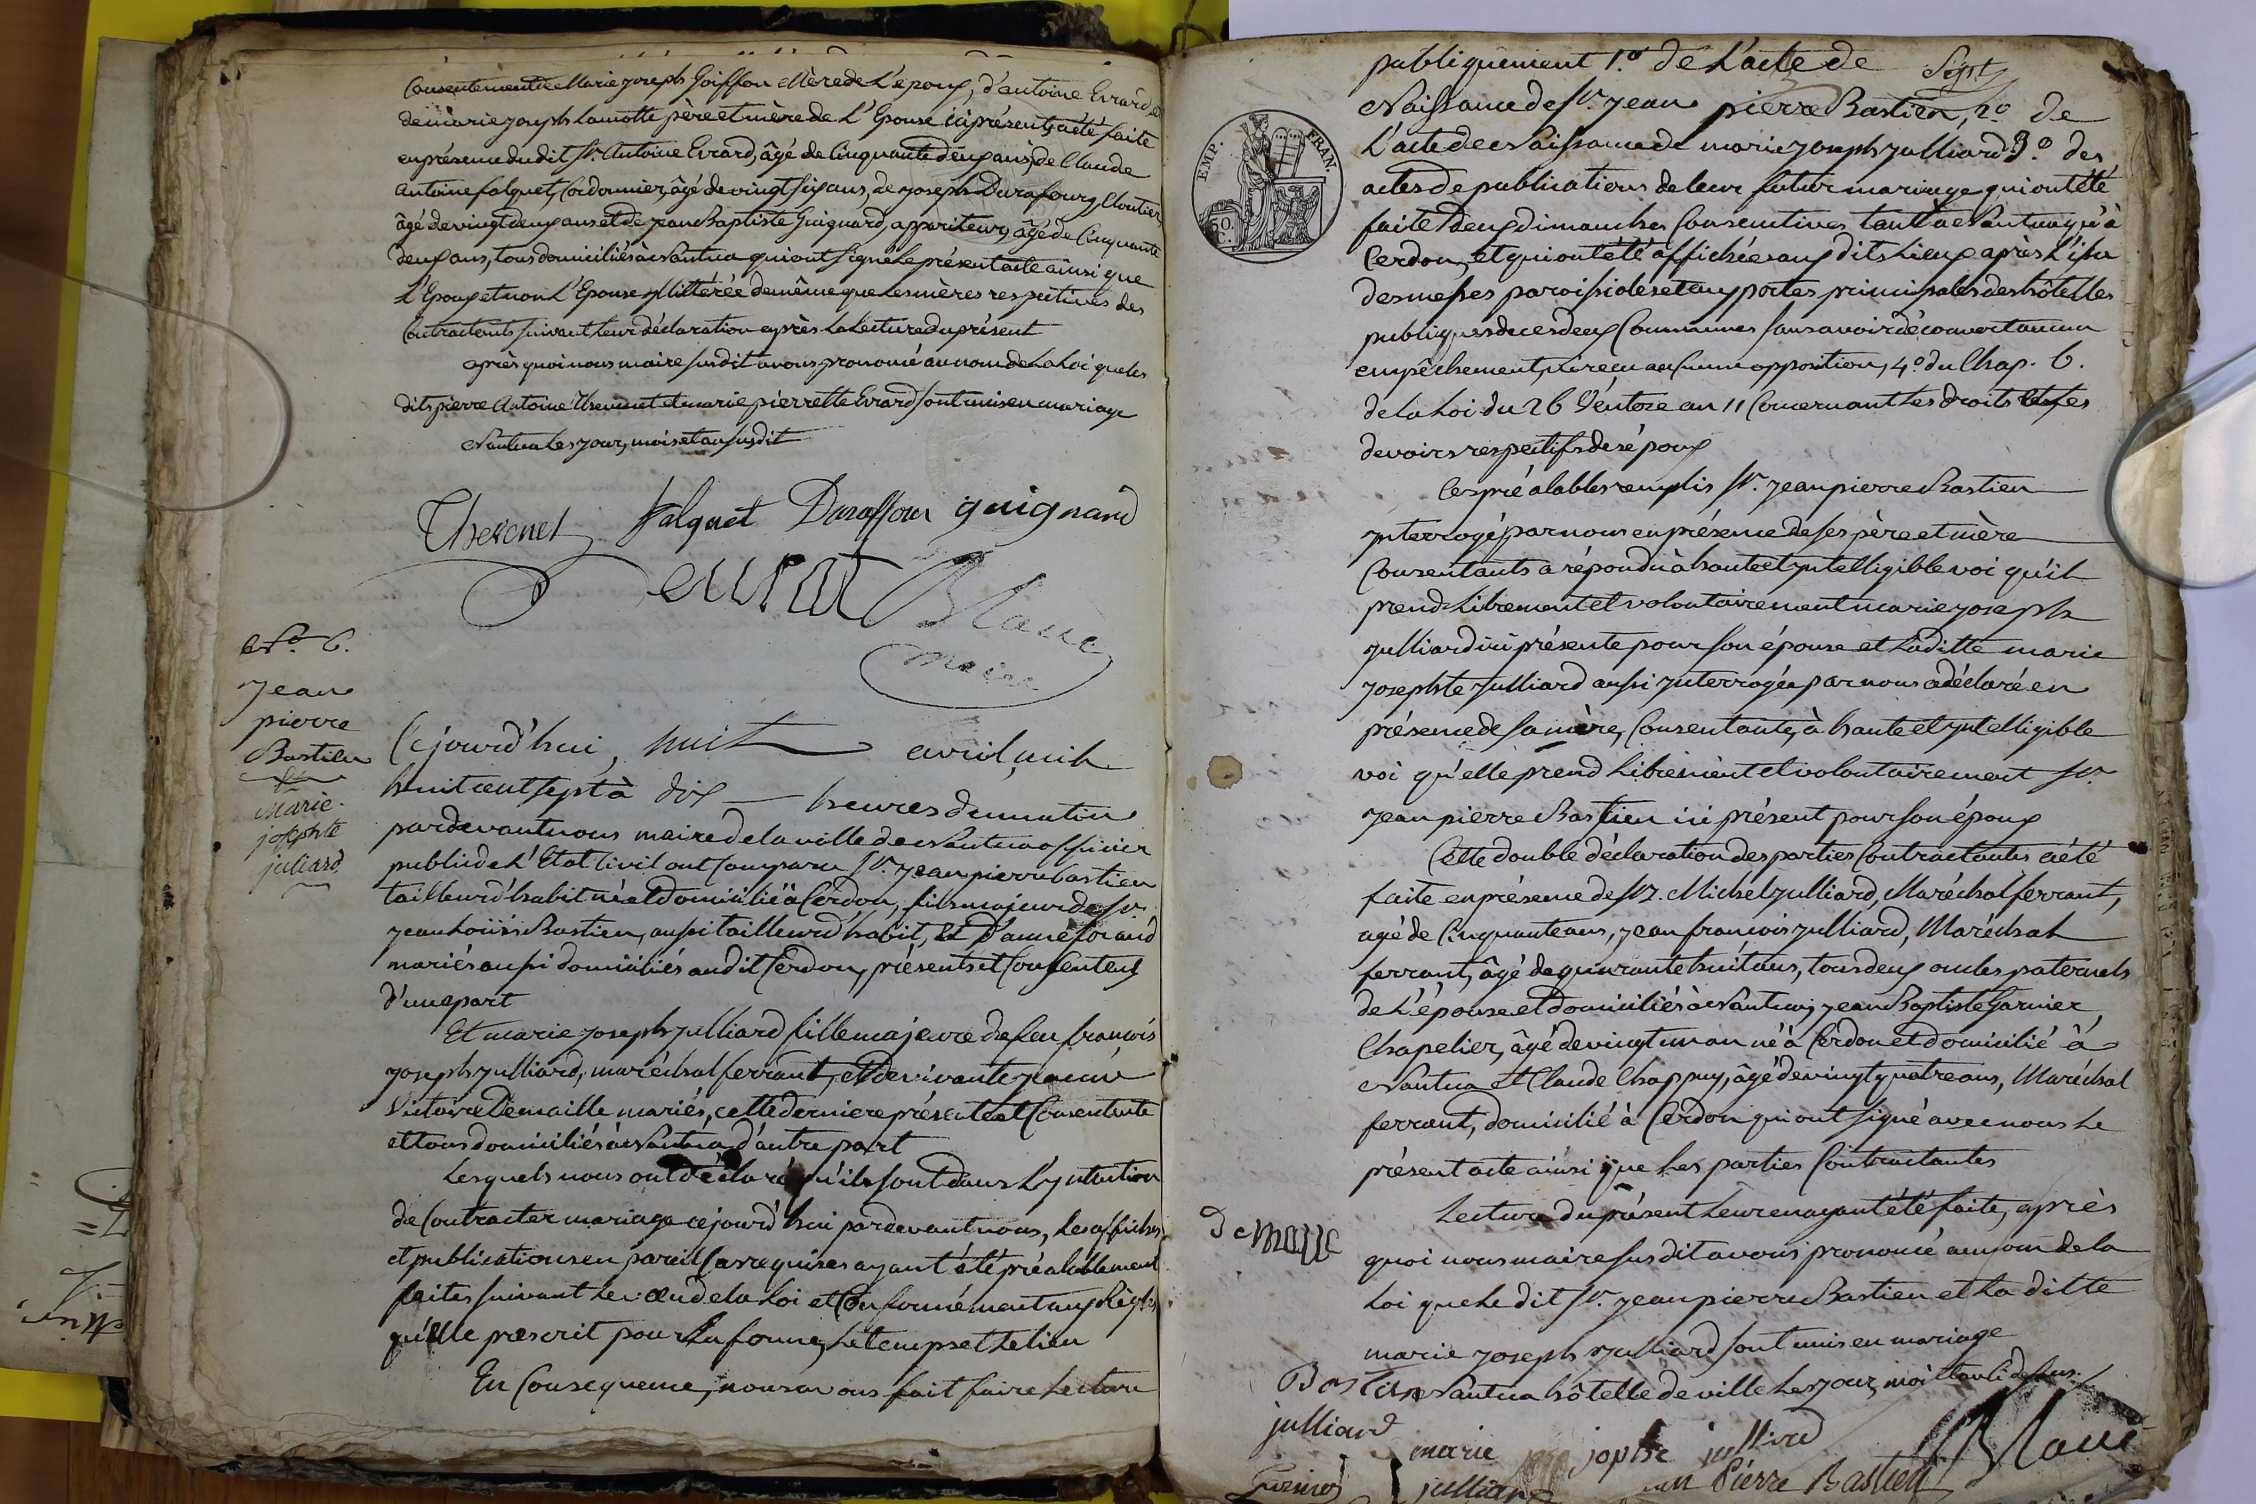 Consentement de Marie joseph Goiffon Mère de L'Epoux, d'antoine Evrard et
de marie joseph Lamotte père et mère de L'Epouse ici présents, a été faite
en présence du dit Sr. Antoine Evrard, âgé de Cinquante deux ans, de Claude
antoine falquet, Cordonnier, âgé de vingt six ans, de joseph Durafourg, Cloutier
âgé de vingt deux ans et de jean Baptiste Guignard, appariteur, âgé de Cinquante
deux ans, tous domiciliés à Nantua qui ont signé Le présent acte ainsi que
L'Epoux et non L'Epouse illitérée de même que Les mères respectives des
Contractants suivant leur déclaration après La Lecture du présent
après quoi nous maire susdit avons prononcé au nom de La Loi que les
dits pierre Antoine Thevenet et marie pierrette Evrard sont unis en mariage
Nantua Les jour, mois et an susdit
Thevenet falquet Duraffour guignard
evrar Blanc
maire
No. 6.
jean
pierre
Bastien
&
Marie
josephte
juliard.
Cejourd'hui, huit avril, mil
huit cent sept à dix heures du matin
pardevant nous maire de la ville de Nantua officier
public de L'Etat Civil ont Comparu Sr. jean pierre Bastien
tailleur d'habit né et domicilié à Cerdon, fils majeur de Sr.
jean Loüis Bastien, aussi tailleur d'habit, et d'anne forand
mariés aussi domiciliés audit Cerdon, présents et Consentents
d'une part
Et marie joseph julliard fille majeure de feu françois
joseph julliard, maréchal ferrant, et de vivante jeanne
Victoire Demaille mariés, cette derniere présente et Consentente
et tous domiciliés à Nantua d'autre part
Lesquels nous ont déclaré qu'ils sont dans L'yntention
de Contracter mariage cejourd'hui pardevant nous, Les affiches
et publications en pareil Cas requises ayant été préalablement
faites suivant Le vœu de la Loi et Conformément aux Règles
qu'elle prescrit pour La forme, Le temps et Le lieu
En Consequence, nous avons fait faire Lecture
Sept
publiquement 1.o de L'acte de
Naissance de Sr. jean pierre Bastien, 2o. de
L'acte de Naissance de marie joseph julliard 3.o des
actes de publications de leur futur mariage qui ont été
faites deux dimanches Consecutives tant à Nantua qu'à
Cerdon, et qui ont été affichées aux dits Lieux après L'issu
des messes paroissiales et aux portes principales des hôtelles
publiques de ces deux Communes sans avoir découvert aucun
empêchement, ni reçu aucune opposition, 4.o du Chap. 6.
de la Loi du 26 Ventoze an 11 Concernant Les droits et les
devoirs respectifs des époux
Ces préalables remplis Sr. jean pierre Bastien
ynterrogé par nous en présence de ses père et mère
Consentants a répondu à haute et yntelligible voi qu'il
prend Librement et volontairement marie joseph
julliard ici présente pour son épouse et La ditte marie
josephte julliard aussi ynterrogée par nous a déclaré en
présence de sa mère, Consentante, à haute et yntelligible
voi qu'elle prend Librement et volontairement Sr.
jean pierre Bastien ici présent pour son époux
Cette double déclaration des parties Contractantes a été
faite en présence de Sr. Michel julliard, Maréchal ferrant,
agé de Cinquante ans, jean francois julliard, Maréchal
ferrant, âgé de quarante huit ans, tous deux oncles paternels
de L'épouse et domiciliés à Nantua, jean Baptiste Garnier
Chapelier, âgé de vingt un an né à Cerdon et domicilié à
Nantua et Claude Chappuy, âgé de vingt quatre ans, Maréchal
ferrant, domicilié à Cerdon qui ont signé avec nous Le
présent acte ainsi que Les parties Contractantes
Lecture du présent Leur en ayant été faite, après
quoi nous maire susdit avons prononcé au nom de la
Loi que Le dit Sr. jean pierre Bastien et La ditte
marie joseph julliard sont unis en mariage
Nantua hôtelle de ville Les jour, moi et an ci dessus
demalle
Bastien
julliard marie jophte julliard Blanc
julliard pierre Bastien
EMP. FRAN.
50. C.